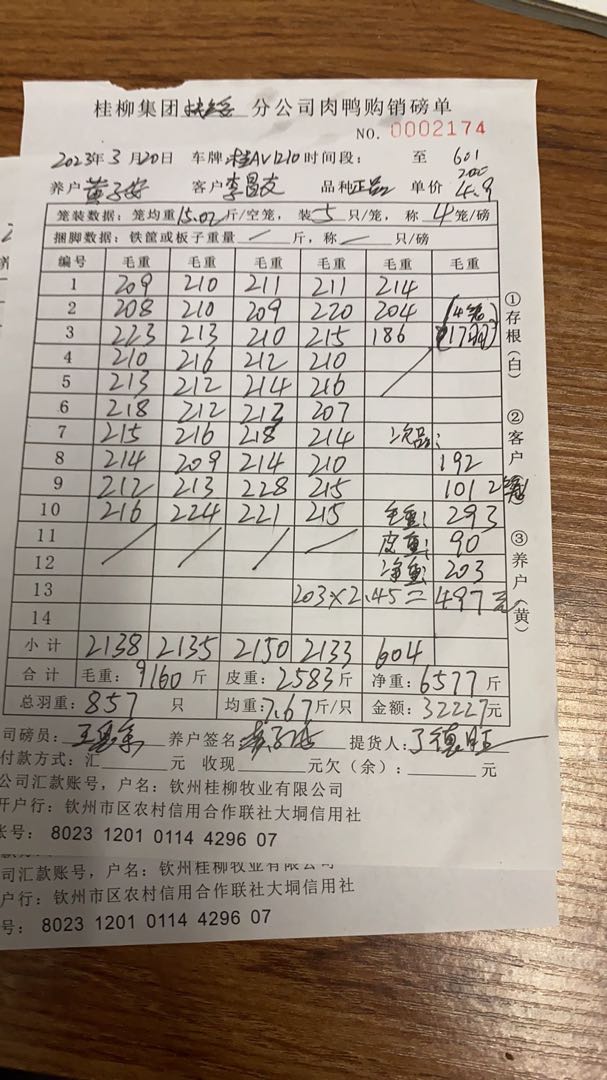 桂柳集团 分公司肉鸭购销磅单
NO. 0002174
2023年3月20日 车牌 桂AV1210 时间段: 至 601
200
养户 黄子安 客户 李昌友 品种 正品 单价 4.9
笼装数据: 笼均重15.07斤/空笼, 装5只/笼, 称4笼/磅
捆脚数据: 铁筐或板子重量 / 斤, 称 / 只/磅
编号 毛重 毛重 毛重 毛重 毛重 毛重
1 209 210 211 211 214
2 208 210 209 220 204 (4笼
3 223 213 210 215 186 17羽)
4 210 216 212 210
5 213 212 214 216
6 218 212 213 207
7 215 216 218 214 次品:
8 214 209 214 210 192
9 212 213 228 215 101 2笼
10 216 224 221 215 毛重: 293
11 / / / / 皮重: 90
12 净重: 203
13 203×2.45=497元
14
小计 2138 2135 2150 2133 604
合计 毛重: 9160斤 皮重: 2583斤 净重: 6577斤
总羽重: 857 只 均重: 7.67斤/只 金额: 32227元
司磅员: 养户签名 提货人: 丁德旺
付款方式: 汇 元 收现 元欠(余): 元
公司汇款账号, 户名: 钦州桂柳牧业有限公司
开户行: 钦州市区农村信用合作联社大垌信用社
账号: 8023 1201 0114 4296 07
司汇款账号, 户名: 钦州桂柳牧业有限公司
户行: 钦州市区农村信用合作联社大垌信用社
号: 8023 1201 0114 4296 07
①存根(白)
②客户
③养户(黄)